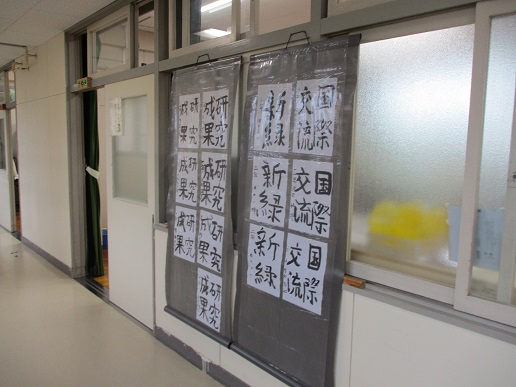 国際
交流
国際
交流
国際
交流
新緑
新緑
新緑
研究
成果
研究
成果
研究
成果
研究
成果
成果
成果
成果